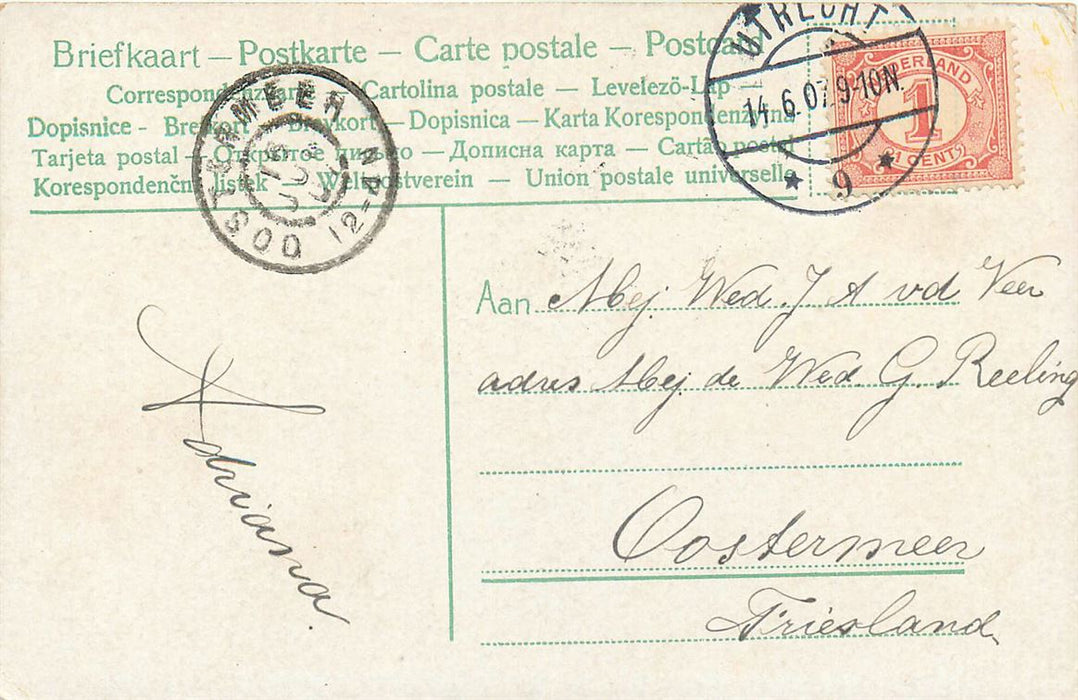 Briefkaart — Postkarte — Carte postale — Postcard
Correspondenzkarte — Cartolina postale — Levelezö-Lap —
Dopisnice - Brefkort — Brevkort — Dopisnica — Karta Korespondencyjna
Tarjeta postal — Открытое письмо — Дописна карта — Cartão postal
Korespondenční lístek — Weltpostverein — Union postale universelle
OOSTERMEER 12-4N
15 JUN 07
UTRECHT
14.6.07 9-10N
9
NEDERLAND
1
1 CENT
Aan Mej. Wed. J A vd Veer
adres Mej. de Wed. G. Reeling
Oostermeer
Friesland
Adriana.